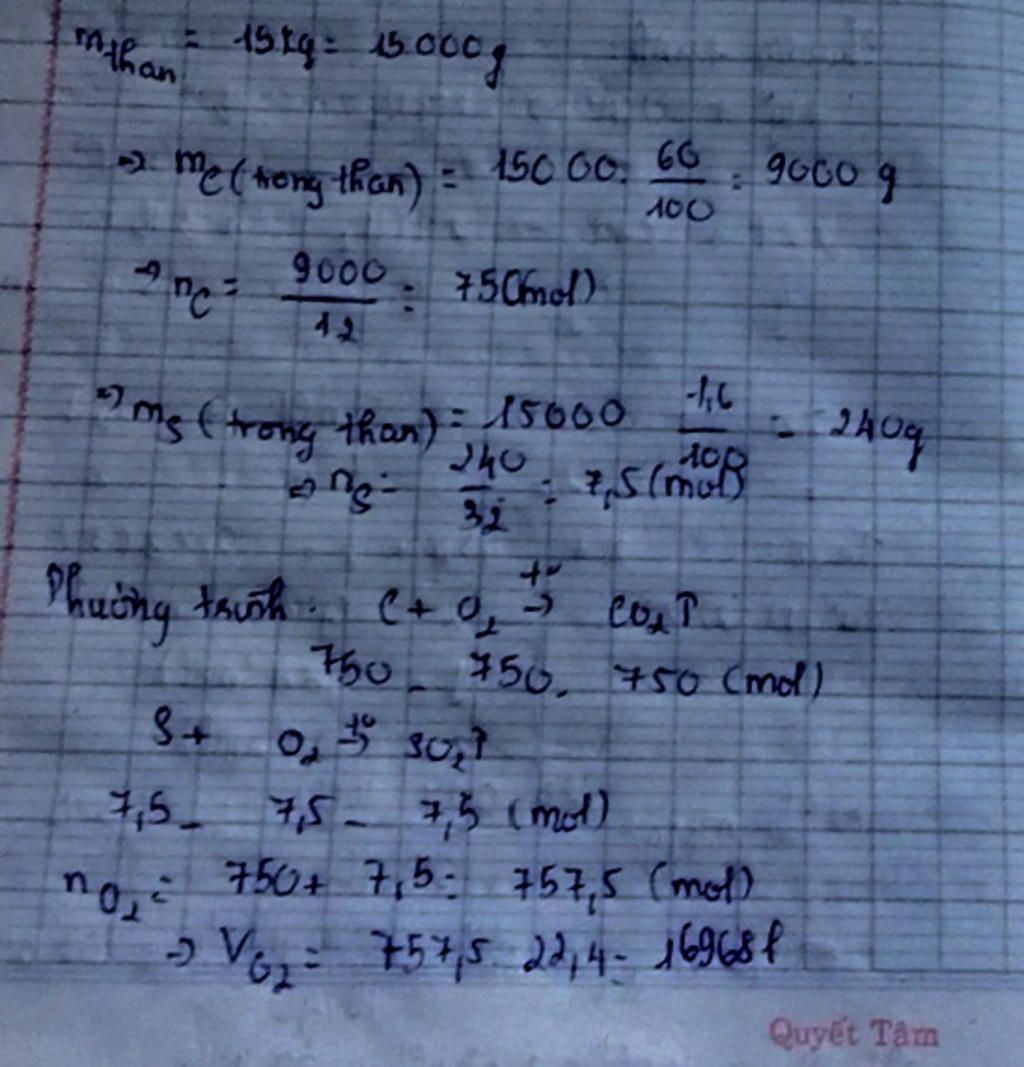 m than = 15kg = 15000g
=> mC (trong than) = 15000. 60/100 = 9000 g
=> nC = 9000/12 = 75(mol)
=> mS (trong than) = 15000 1,6/100 = 240g
=> nS = 240/32 = 7,5 (mol)
Phương trình. C + O2 t° → CO2↑
750 - 750. 750 (mol)
S + O2 t° → SO2↑
7,5 - 7,5 - 7,5 (mol)
nO2 = 750 + 7,5 = 757,5 (mol)
→ VO2 = 757,5 22,4 = 16968 l
Quyết Tâm